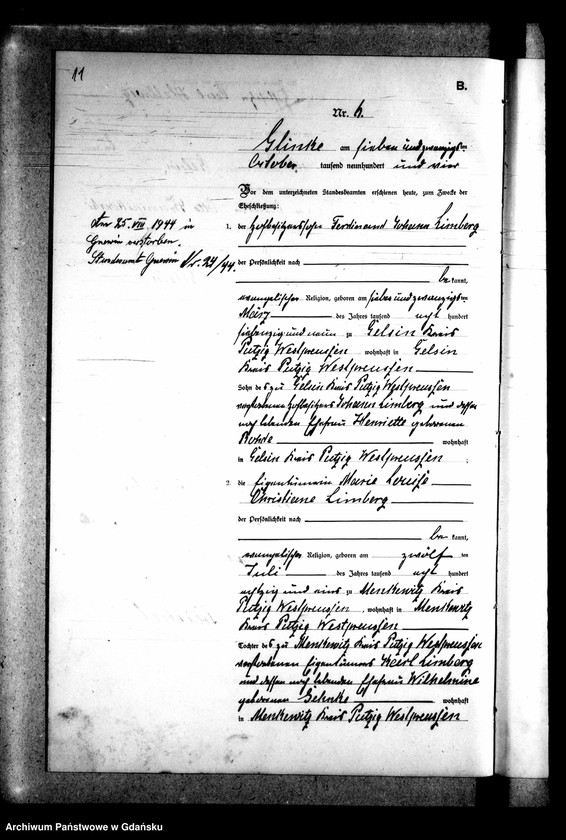 11
B.
Nr. 6.
Glinke am sieben und zwanzigsten
October tausend neunhundert und vier
Vor dem unterzeichneten Standesbeamten erschienen heute, zum Zwecke der
Eheschließung:
1. der Hofbesitzerssohn Ferdinand Johann Limberg
der Persönlichkeit nach
bekannt,
evangelischer Religion, geboren am sieben und zwanzigsten
März des Jahres tausend acht hundert
siebzig und neun zu Gelsin Kreis
Putzig Westpreussen, wohnhaft in Gelsin
Kreis Putzig Westpreussen
Sohn des zu Gelsin Kreis Putzig Westpreussen
verstorbenen Hofbesitzers Johann Limberg und dessen
noch lebenden Ehefrau Henriette geborenen
Rohde wohnhaft
in Gelsin Kreis Putzig Westpreussen
2. die Eigentümerin Marie Louise
Christiane Limberg
der Persönlichkeit nach
bekannt,
evangelischer Religion, geboren am zwölften
Juli des Jahres tausend acht hundert
achtzig und eins zu Menkewitz Kreis
Putzig Westpreussen, wohnhaft in Menkewitz
Kreis Putzig Westpreussen
Tochter des zu Menkewitz Kreis Putzig Westpreussen
verstorbenen Eigentümers Karl Limberg
und dessen noch lebenden Ehefrau Wilhelmine
geborenen wohnhaft
in Menkewitz Kreis Putzig Westpreussen
Am 25. VII 1944 in
Gnewin verstorben.
Standesamt Gnewin Nr. 24/44.
Archiwum Państwowe w Gdańsku